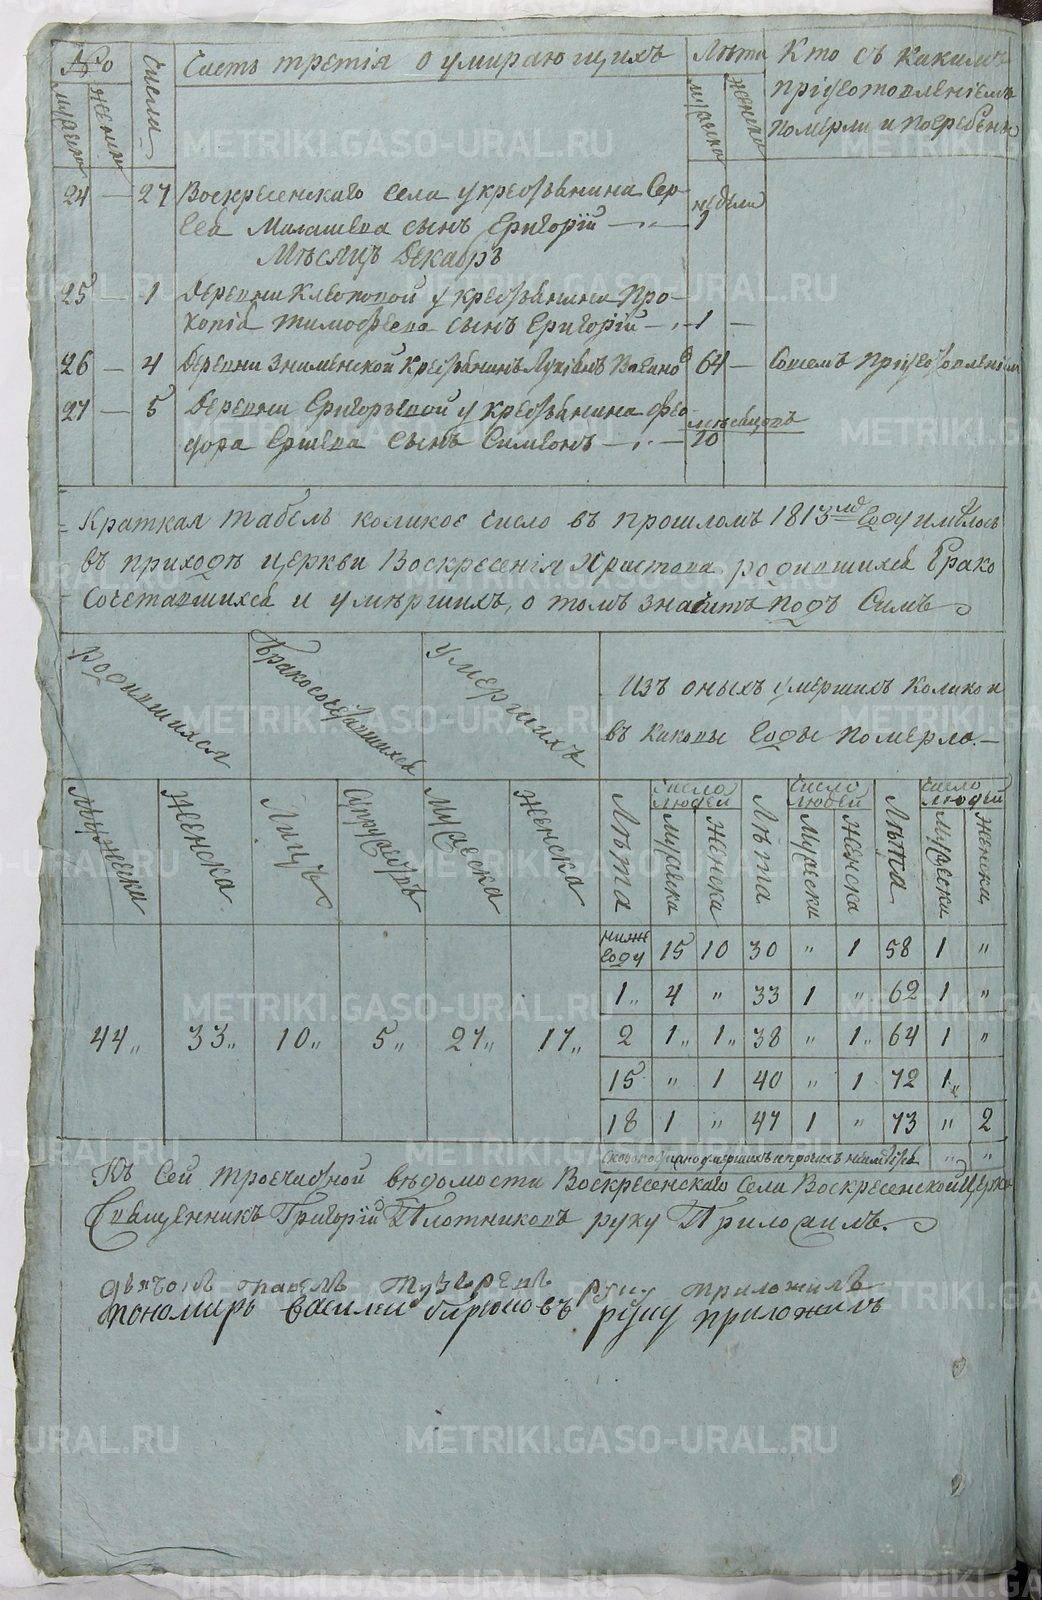 № Числа Часть третія о умирающихъ Лѣта Кто съ какимъ
мужеска женска мужеска женска пріуготовленіемъ
померли и погребены
24 — 27 Воскресенскаго села у крестьянина Сер-
гѣя сынъ Григорій — „ — недѣли 1
Мѣсяцъ Декабрь
25 — 1 Деревни у крестьянина Про-
копія Тимофеева сынъ Григорій — „ — 1 —
26 — 4 Деревни Знаменской крестьянинъ 64 —
27 — 5 Деревни Григорьевой у крестьянина Фео-
дора Ершева сынъ Симеонъ — „ — мѣсяцовъ 10
Краткая табель коликое число въ прошломъ 1813мъ году имѣлось
въ приходѣ церкви Воскресенія Христова родившихся брако
сочетавшихся и умершихъ, о томъ значитъ подъ симъ
родившихся бракосочетавшихся умершихъ
Изъ оныхъ умершихъ колико и
въ каковы годы померло. —
мужеска женска лицъ супружествъ мужеска женска Лѣта число людей Лѣта число людей Лѣта число людей
мужески женска мужески женска мужески женска
ниже году 15 10 30 „ 1 58 1 „
1„ 4 „ 33 1 „ 62 1 „
44„ 33„ 10„ 5„ 27„ 17„ 2 1„ 1„ 38 „ 1„ 64 1 „
15 „ 1 40 „ 1 72 1„
18 1 „ 47 1 „ 73 „ 2
„ „
Къ сей троечастной вѣдомости Воскресенскаго села Воскресенской церкви
Священникъ Григорій Плотниковъ руку приложилъ.
дьячокъ Павелъ руку приложилъ
пономарь василей бирюковъ руку приложилъ
METRIKI.GASO-URAL.RU